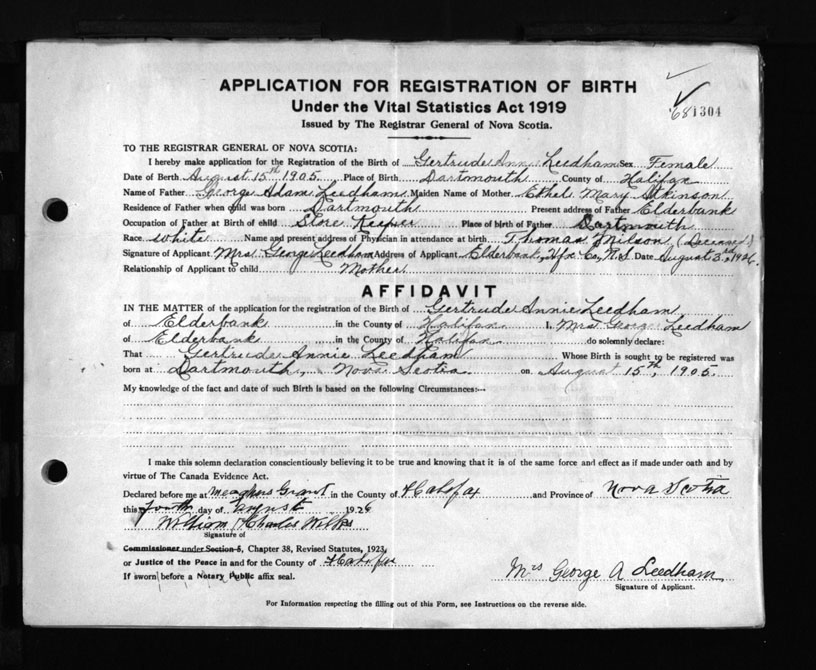 APPLICATION FOR REGISTRATION OF BIRTH
Under the Vital Statistics Act 1919
Issued by The Registrar General of Nova Scotia.
681304
TO THE REGISTRAR GENERAL OF NOVA SCOTIA:
I hereby make application for the Registration of the Birth of Gertrude Ann Leedham Sex Female
Date of Birth August 15th 1905. Place of Birth Dartmouth County of Halifax
Name of Father George Adam Leedham Maiden Name of Mother Ethel Mary Atkinson
Residence of Father when child was born Dartmouth Present address of Father Elderbank
Occupation of Father at Birth of child Store Keeper Place of birth of Father Dartmouth
Race White Name and present address of Physician in attendance at birth Thomas Milson (Deceased)
Signature of Applicant Mrs. George Leedham Address of Applicant Elderbank, Hfx Co, N.S. Date August 3rd, 1926.
Relationship of Applicant to child Mother
AFFIDAVIT
IN THE MATTER of the application for the registration of Birth of Gertrude Annie Leedham
of Elderbank in the County of Halifax I, Mrs George Leedham
of Elderbank in the County of Halifax do solemnly declare:
That Gertrude Annie Leedham Whose Birth is sought to be registered was
born at Dartmouth, Nova Scotia on August 15th, 1905.
My knowledge of the fact and date of such Birth is based on the following Circumstances:—
I make this solemn declaration conscientiously believing it to be true and knowing that it is of the same force and effect as if made under oath and by
virtue of The Canada Evidence Act.
Declared before me at Meaghers Grant in the County of Halifax and Province of Nova Scotia
this fourth day of August 1926
William Charles Wilks
Signature of
Commissioner under Section 5, Chapter 38, Revised Statutes, 1923,
or Justice of the Peace in and for the County of Halifax
If sworn before a Notary Public affix seal.
Mrs George A Leedham
Signature of Applicant.
For Information respecting the filling out of this Form, see Instructions on the reverse side.